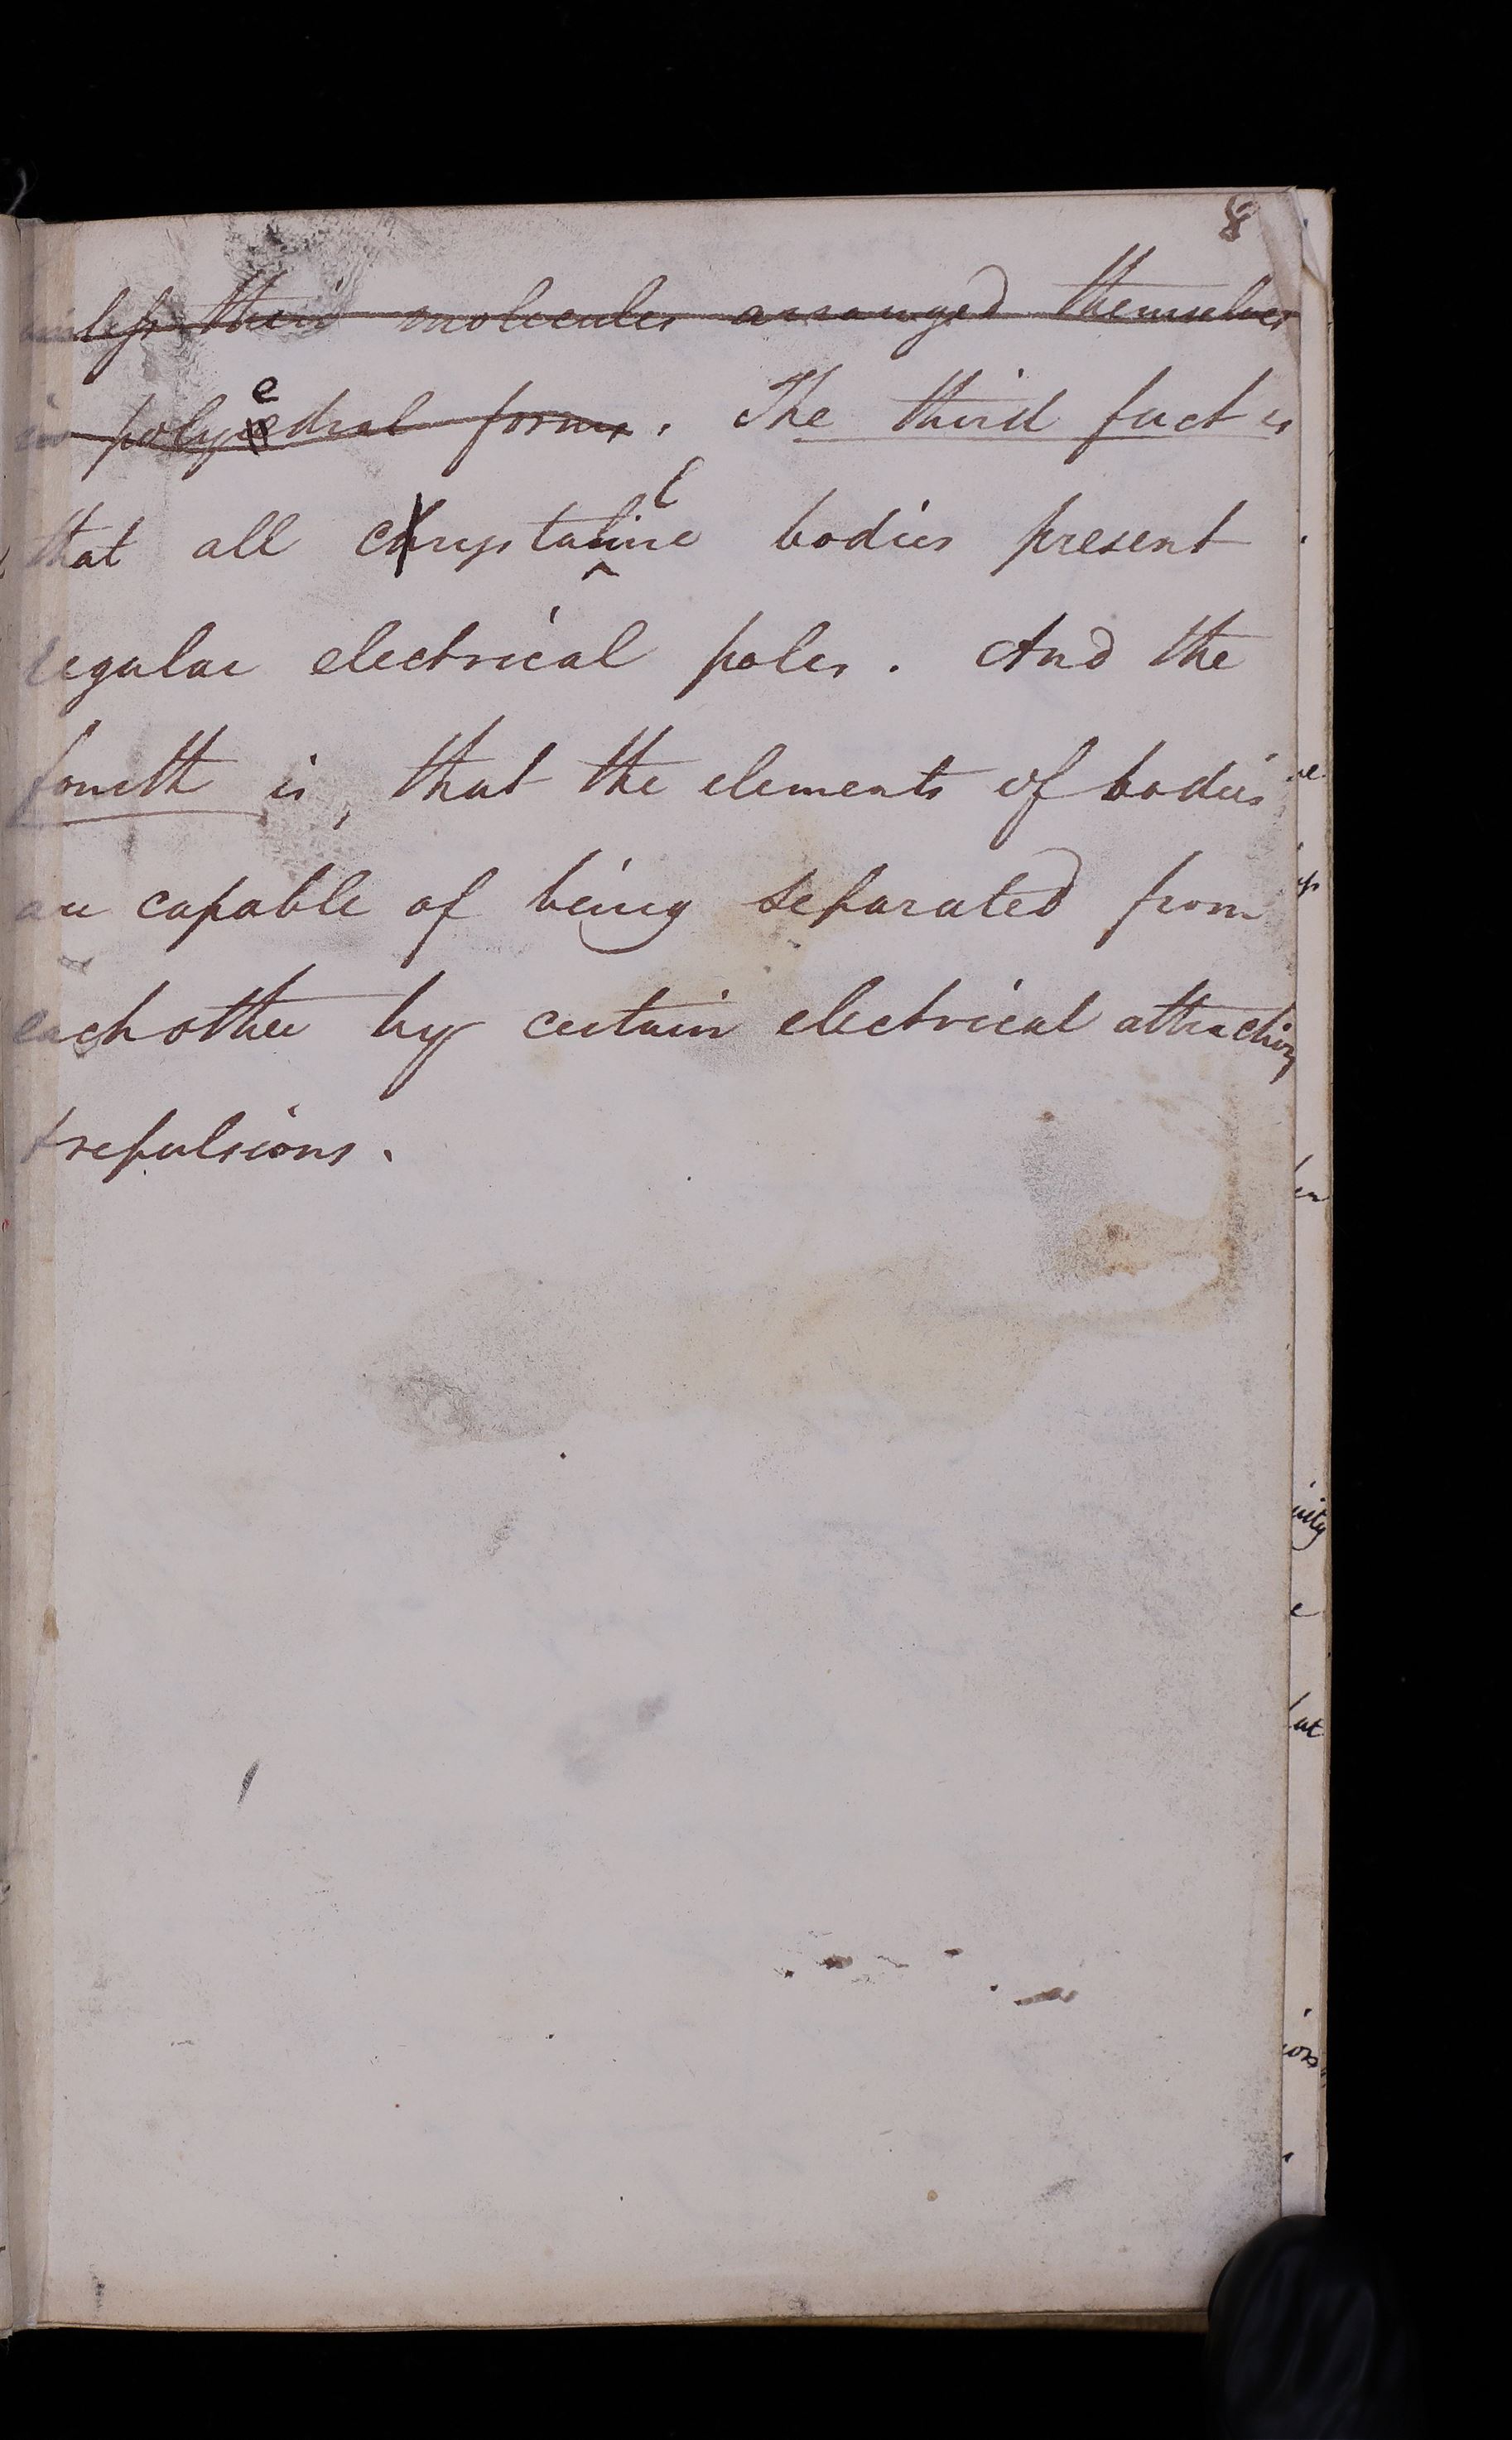 8
unless their molecules arranged themselves
in polyedral forms. The third fact is
that all crystalline bodies present
regular electrical poles. And the
fourth is, that the elements of bodies
are capable of being separated from
each other by certain electrical attractions
& repulsions.